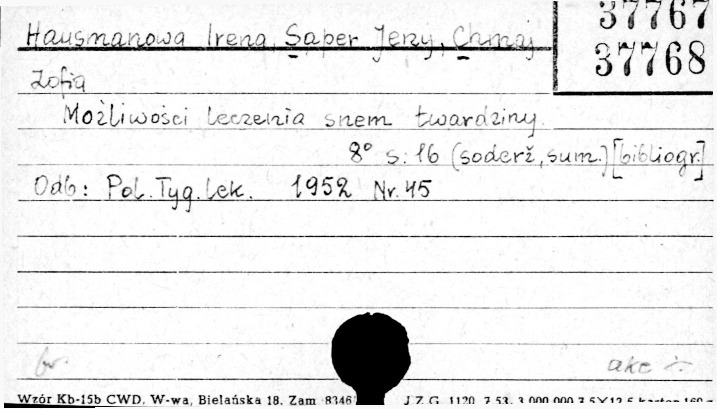 37767
Hausmanowa Irena, Saper Jerzy, Chmaj
37768
Zofia
Możliwości leczenia snem twardziny.
8° s. 16 (soderž, sum.) [bibliogr.]
Odb: Pol. Tyg. lek. 1952 Nr. 45
br.
akc
Wzór Kb-15b CWD, W-wa, Bielańska 18. Zam 8346
J.Z.G. 1120 7.53. 3.000.000 7,5×12,5 karton 160 g